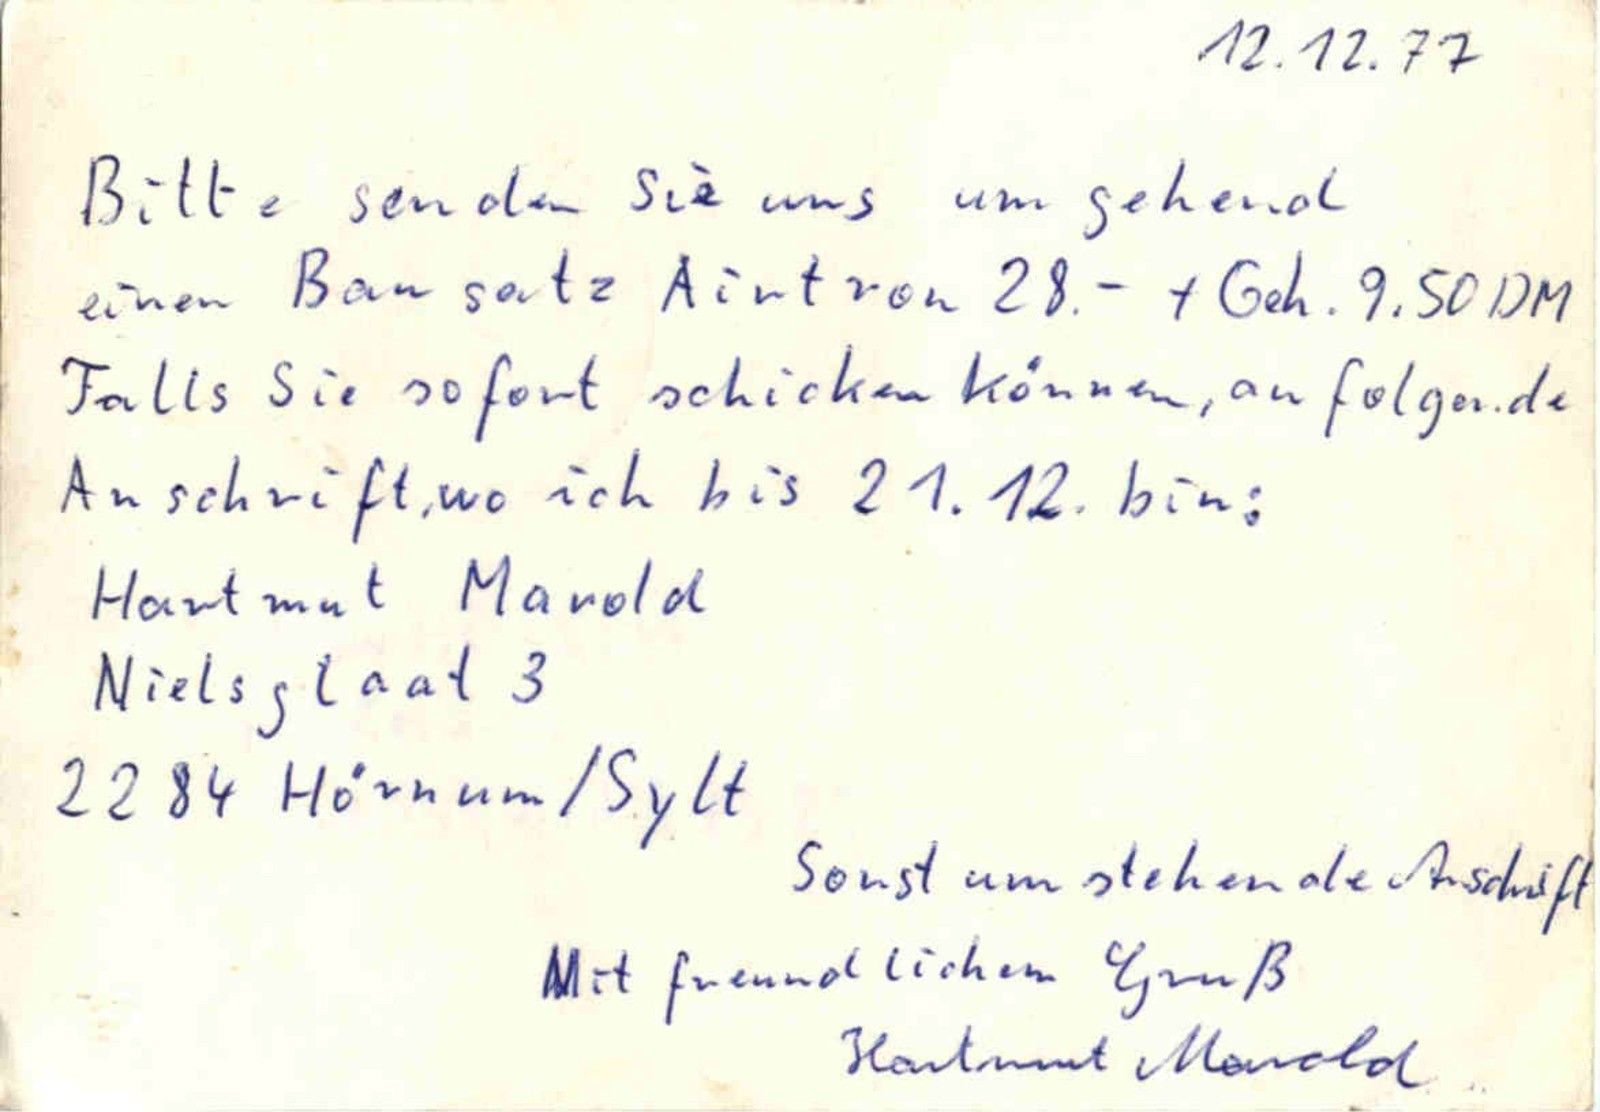 12.12.77
Bitte senden Sie uns umgehend
einen Bausatz Aintron 28.- + Geh. 9.50 DM
Falls Sie sofort schicken können, an folgende
Anschrift, wo ich bis 21.12. bin:
Hartmut Marold
Nielsglaat 3
2284 Hörnum/Sylt
Sonst umstehende Anschrift
Mit freundlichem Gruß
Hartmut Marold